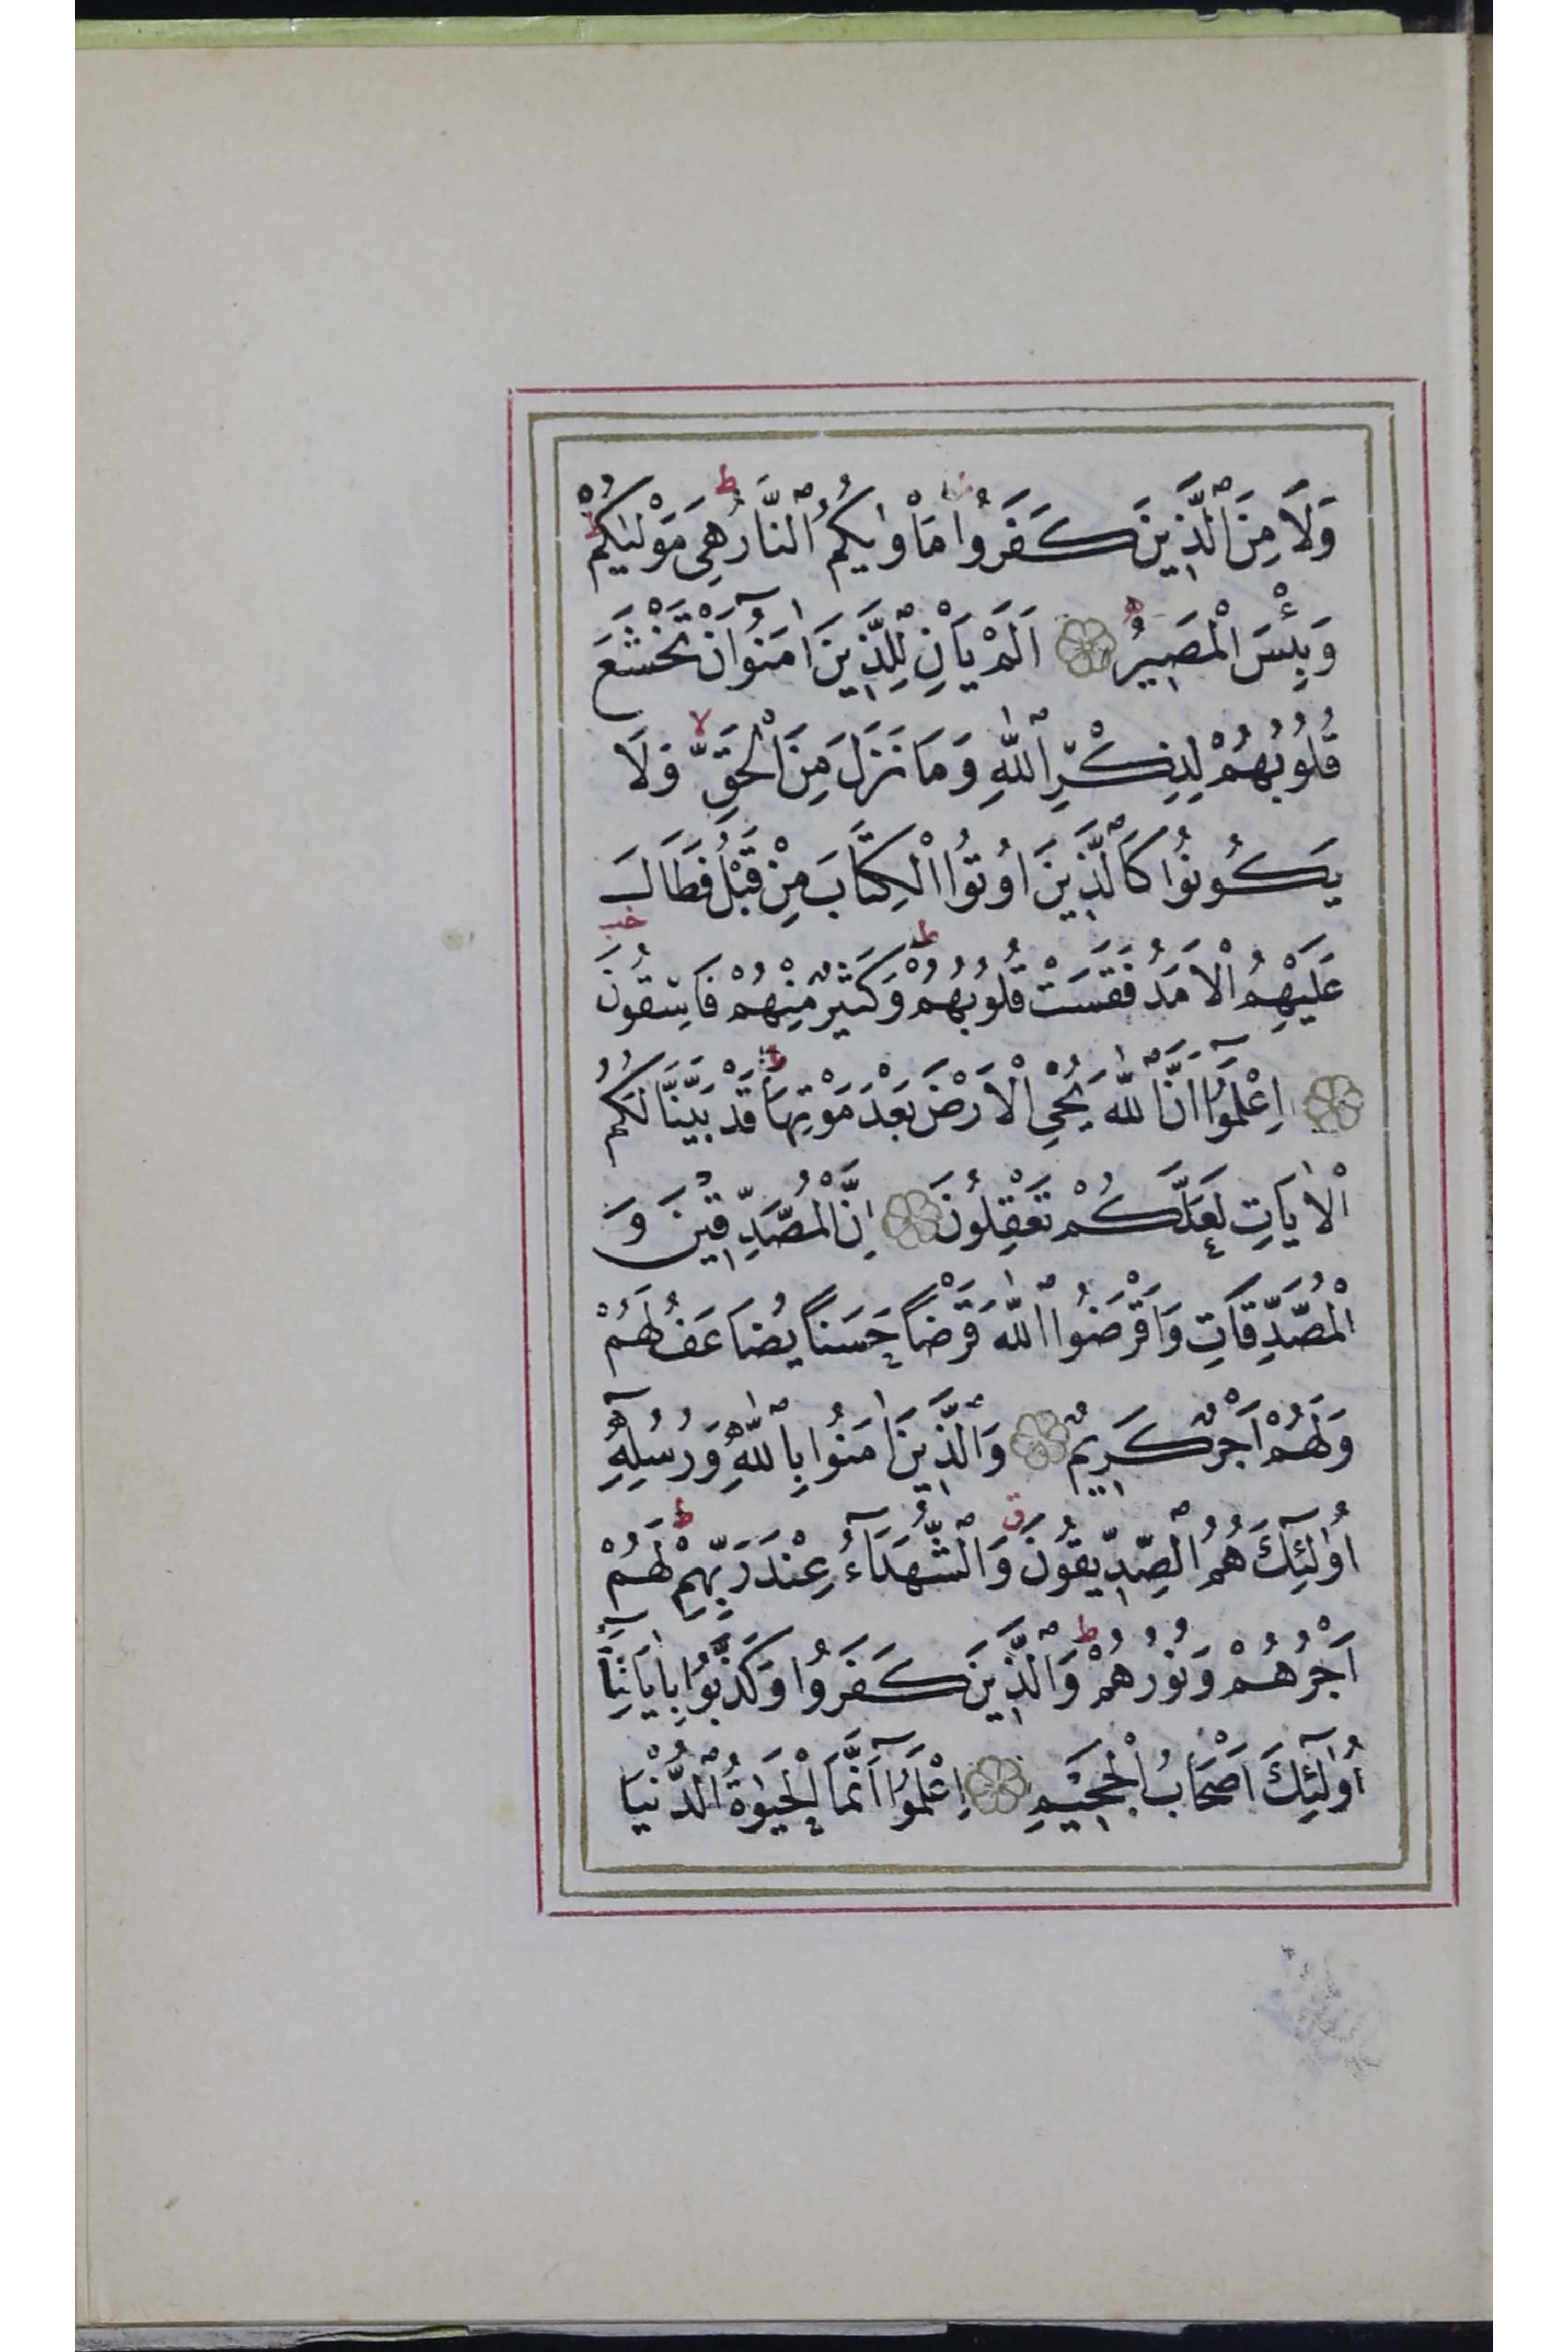 وَلَا مِنَ الَّذِينَ كَفَرُوا مَأْوٰيكُمُ النَّارُ ط هِيَ مَوْلٰيكُمْ ط
وَبِئْسَ الْمَصِيرُ اَلَمْ يَأْنِ لِلَّذِينَ اٰمَنُوٓا اَنْ تَخْشَعَ
قُلُوبُهُمْ لِذِكْرِ اللّٰهِ وَمَا نَزَلَ مِنَ الْحَقِّ لا وَلَا
يَكُونُوا كَالَّذِينَ اُوتُوا الْكِتَابَ مِنْ قَبْلُ فَطَالَ
عَلَيْهِمُ الْاَمَدُ فَقَسَتْ قُلُوبُهُمْ ط وَكَثِيرٌ مِنْهُمْ فَاسِقُونَ
اِعْلَمُوٓا اَنَّ اللّٰهَ يُحْيِ الْاَرْضَ بَعْدَ مَوْتِهَا ط قَدْ بَيَّنَّا لَكُمُ
الْاٰيَاتِ لَعَلَّكُمْ تَعْقِلُونَ اِنَّ الْمُصَّدِّقِينَ وَ
الْمُصَّدِّقَاتِ وَاَقْرَضُوا اللّٰهَ قَرْضًا حَسَنًا يُضَاعَفُ لَهُمْ
وَلَهُمْ اَجْرٌ كَرِيمٌ وَالَّذِينَ اٰمَنُوا بِاللّٰهِ وَرُسُلِهٓ
اُولٰٓئِكَ هُمُ الصِّدِّيقُونَ ق وَالشُّهَدَآءُ عِنْدَ رَبِّهِمْ ط لَهُمْ
اَجْرُهُمْ وَنُورُهُمْ ط وَالَّذِينَ كَفَرُوا وَكَذَّبُوا بِاٰيَاتِنَآ
اُولٰٓئِكَ اَصْحَابُ الْجَحِيمِ اِعْلَمُوٓا اَنَّمَا الْحَيٰوةُ الدُّنْيَا